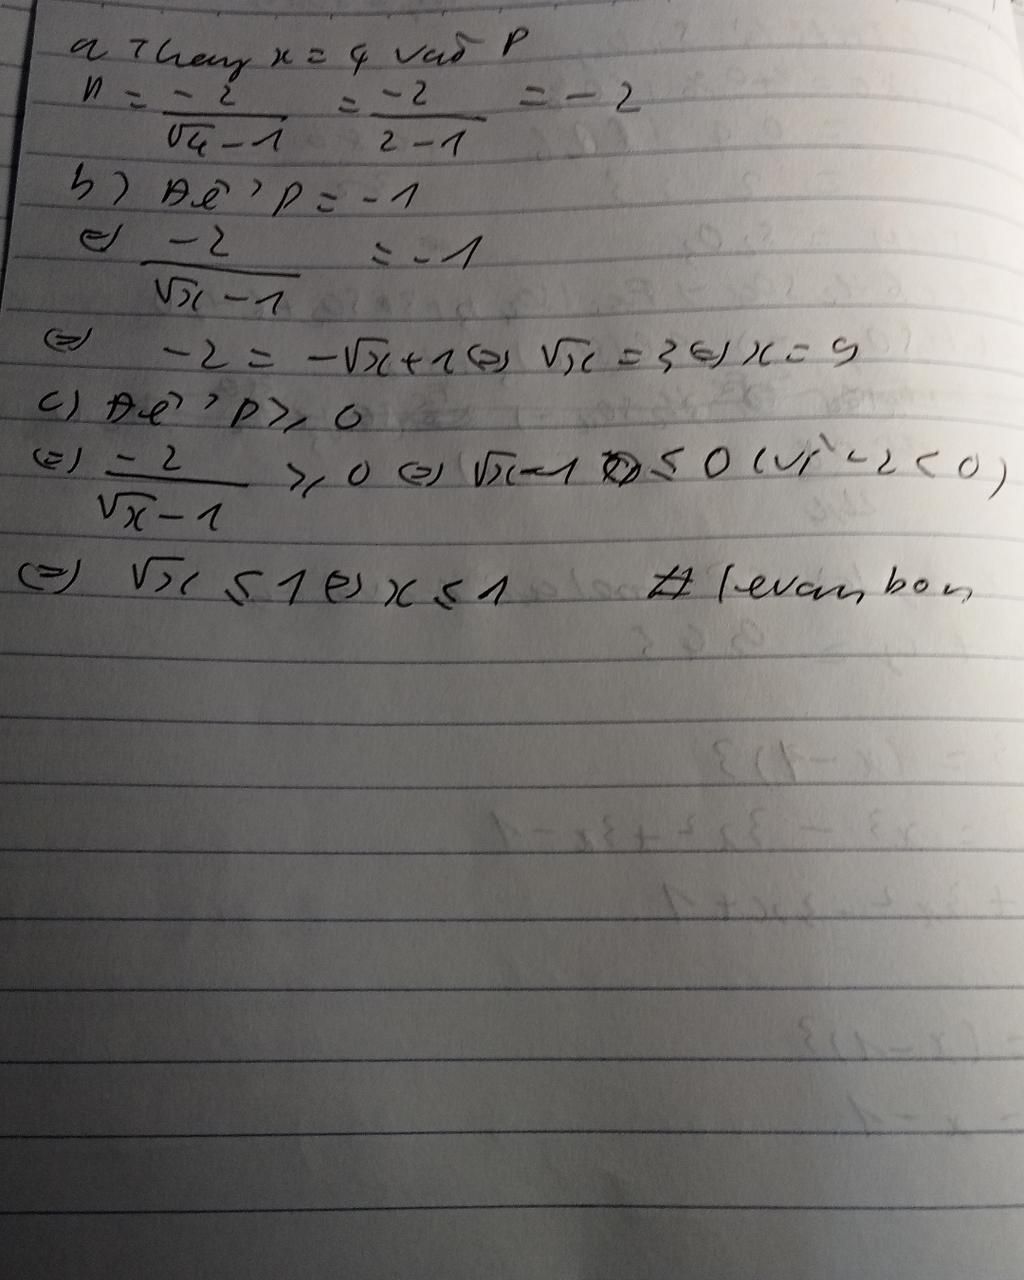 a Thay x = 4 vào P
P = -2/(√4 - 1) = -2/(2 - 1) = -2
b) Để P = -1
⇔ -2/(√x - 1) = -1
⇔ -2 = -√x + 1 ⇔ √x = 3 ⇔ x = 9
c) Để P ≥ 0
⇔ -2/(√x - 1) ≥ 0 ⇔ √x - 1 ≤ 0 (vì -2 < 0)
⇔ √x ≤ 1 ⇔ x ≤ 1 #